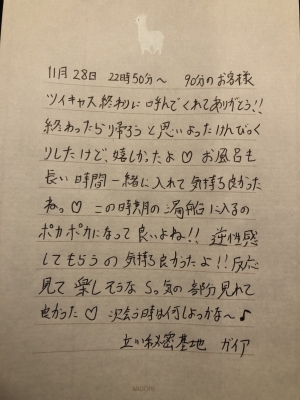 11月28日 22時50分〜 90分のお客様
ツイキャス終わりに呼んでくれてありがとう!!
終わったらり帰ろうと思いよったけんびっく
りしたけど、嬉しかったよ♡ お風呂も
長い時間一緒に入れて気持ち良かった
ねっ♡ この時期の湯船に入るの
ポカポカになって良いよね!! 逆性感
してもらうの気持ち良かったよ!! 反応
見て楽しそうなSっ気の部分見れて
良かった♡ 次会う時は何しよっかな〜♪
立川秘密基地 ガイア